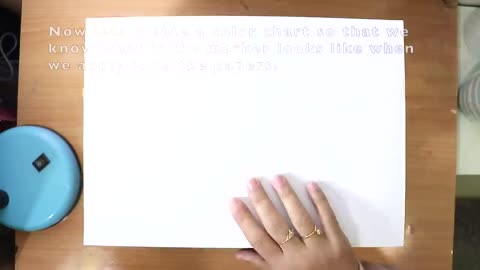 Now lets create a color chart so that we
know what the marker looks like when
we apply to the papers.